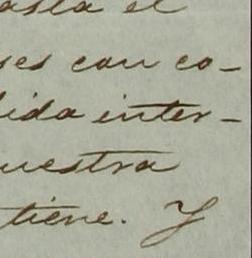 hasta el
ses con co-
dida inter-
uestra
tiene. Y